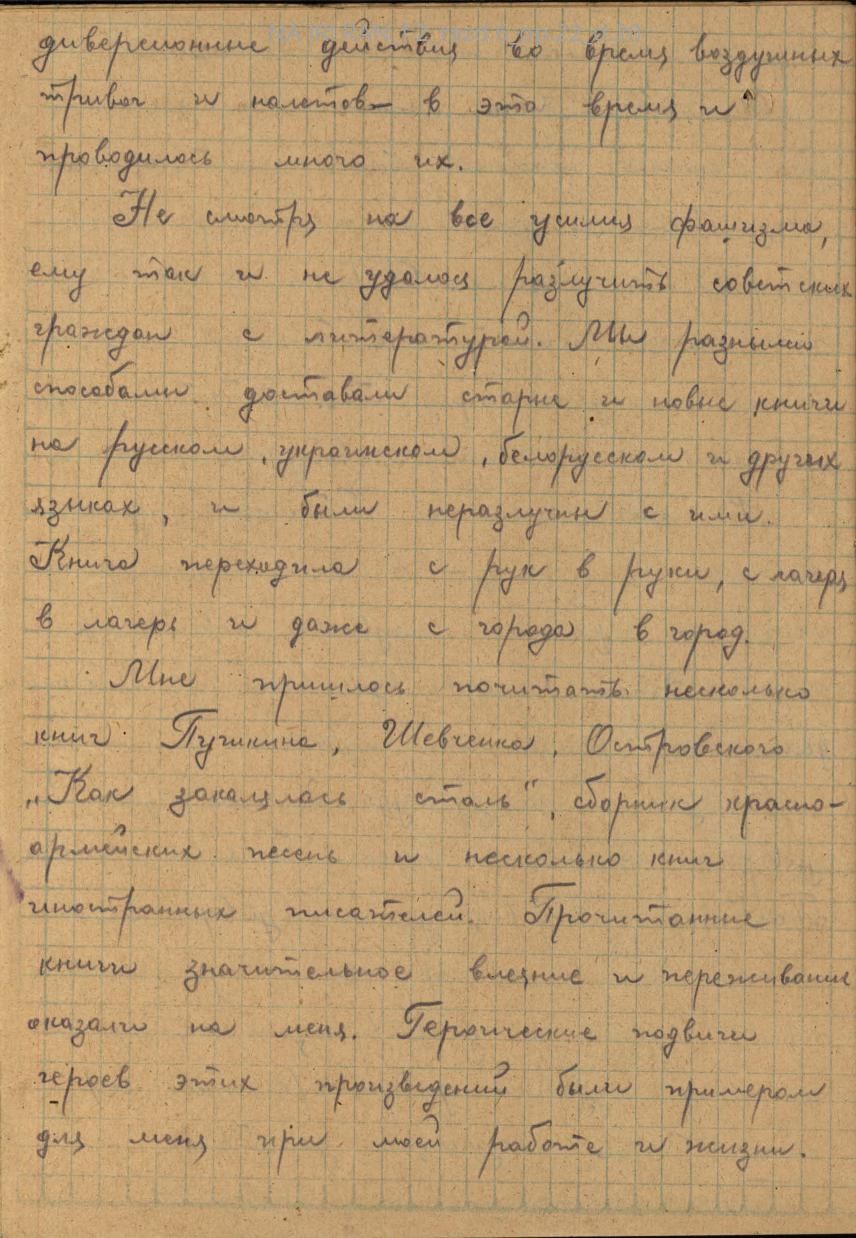 диверсионные действия во время воздушных
тривог и налетов – в это время и
проводилось много их.
Не смотря на все усилия фашизма,
ему так и не удалось разлучить советских
граждан с литературой. Мы разными
способами доставали старые и новые книги
на русском, украинском, белорусском и других
языках, и были неразлучны с ими.
Книга переходила с рук в руки, с лагеря
в лагерь и даже с города в город.
Мне пришлось почитать несколько
книг Пушкина, Шевченка, Островского
„Как закалялась сталь", сборник красно-
армейских песень и несколько книг
иностранных писателей. Прочитанные
книги значительное влеяние и переживание
оказали на меня. Героические подвиги
героев этих произведений были примером
для меня при моей работе и жизни.